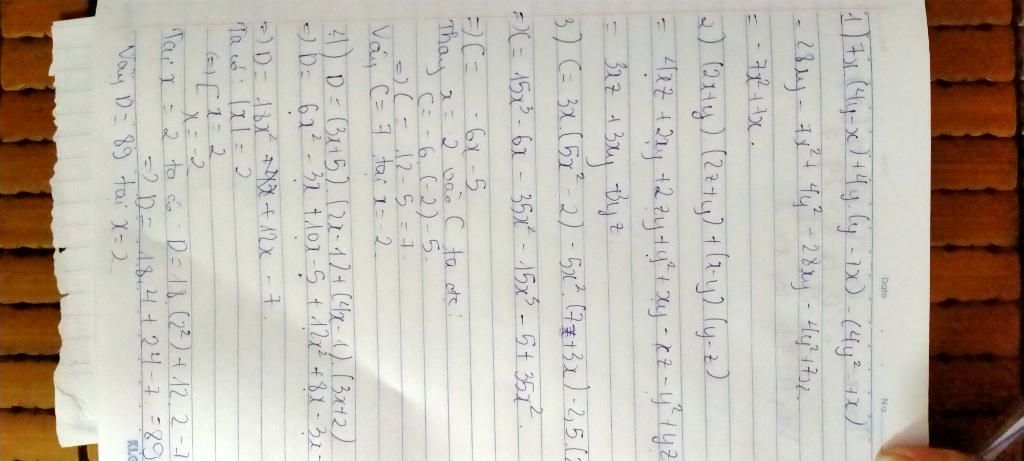 Date . . No.
1) 7x.(4y-x)+4y(y-7x)-(4y²-7x)
= 28xy - 7x² + 4y² - 28xy - 4y² + 7x
= -7x² + 7x.
2) (2x+y)(2z+y)+(x-y)(y-z)
= 4xz + 2xy + 2zy + y² + xy - xz - y² + yz
= 3xz + 3xy + 3yz
3) C = 3x(5x²-2) - 5x²(7+3x) - 2,5(2
=> C = 15x³ - 6x - 35x² - 15x³ - 5 + 35x²
=> C = -6x-5
Thay x = -2 vào C ta đc:
C = -6.(-2) - 5.
=> C = 12-5 = 7.
Vậy C = 7 tại x = -2
4) D = (3x+5)(2x-1)+(4x-1)(3x+2)
=> D = 6x² - 3x + 10x - 5 + 12x² + 8x - 3x -
=> D = 18x² + 12x - 7.
Ta có: |x| = 2
=> [ x = 2
x = -2
Tại x = 2 ta có D = 18(2²) + 12.2 - 7
=> D = 18.4 + 24 - 7 = 89
Vậy D = 89 tại x = 2